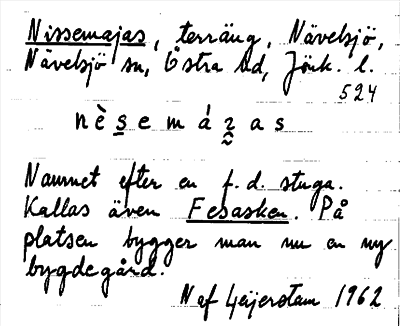 Nissemajas, terräng, Nävelsjö,
Nävelsjö sn, Östra hd, Jönk. l.
524
nèsemázas
Namnet efter en f.d. stuga.
Kallas även Fesasken. På
platsen bygger man nu en ny
bygdegård.
N af Geijerstam 1962